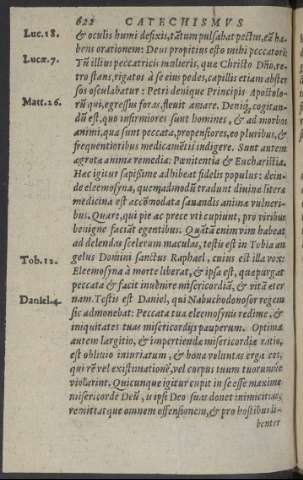 622 CATECHISMVS
Luc. 18. & oculis humi defixis, tātum pulsabat pectus, eā ha-
bens orationem: Deus propitius esto mihi peccatori:
Lucæ. 7. Tū illius peccatricis mulieris, quæ Christo Dño, re-
tro stans, rigatos à se eius pedes, capillis etiam abster
sos osculabatur: Petri denique Principis Apostolo-
Matt. 26. rū qui, egressus foras, fleuit amare. Deniq, cogitan-
dū est, quo infirmiores sunt homines, & ad morbos
animi, qua sunt peccata, propensiores, eo pluribus, &
frequentioribus medicamētis indigere. Sunt autem
agrota anima remedia: Pœnitentia & Eucharistia.
Hæc igitur sæpissime adhibeat fidelis populus: dein-
de eleemosyna, quemadmodū tradunt diuinæ literæ
medicina est accōmodata sanandis animæ vulneri-
bus. Quare, qui pie ac prece vti cupiunt, pro viribus
benigne faciāt egentibus. Quātā enim vim habeat
ad delendas scelerum maculas, testis est in Tobia an
Tob. 12. gelus Domini sanctus Raphael, cuius est illa vox:
Eleemosyna à morte liberat, & ipsa est, quæ purgat
peccata & facit inuenire misericordiā, & vitā æter
Daniel. 4. nam. Testis est Daniel, qui Nabuchodonosor regem
sic admonebat: Peccata tua eleemosynis redime, &
iniquitates tuas misericordijs pauperum. Optima
autem largitio, & impertiendæ misericordiæ ratio,
est obliuio iniuriarum, & bona voluntas erga eos,
qui rē vel existimationē, vel corpus tuum tuorumve
violarint. Quicunque igitur cupit in se esse maxime
misericorde Deū, is ipsi Deo suas donet inimicitias,
remittatque omnem offensionem, & pro hostibus li-
benter